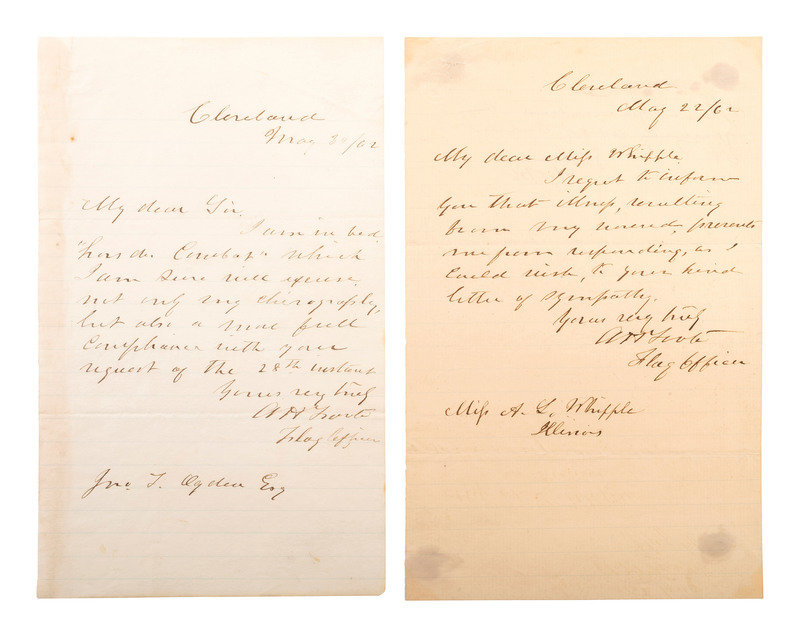 Cleveland
May 30/62
My dear Sir,
I am in bed
"hors de Combat" which
I am sure will excuse
not only my chirography,
but also a more full
compliance with your
request of the 28th instant
Yours very truly
A H Foote
Flag Officer
Jno. T. Ogden Esq
Cleveland
May 22/62
My dear Miss Whipple
I regret to inform
you that illness, resulting
from my wound, prevents
me from responding, as I
could wish, to your kind
letter of sympathy.
Yours very truly
A H Foote
Flag Officer
Miss A. L. Whipple
Illinois